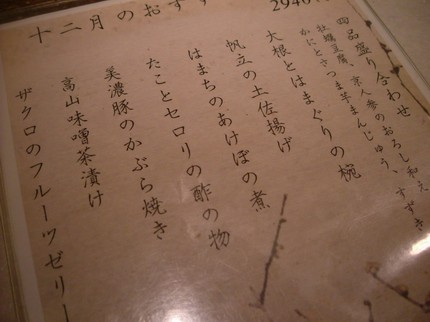 十二月のおすす
2940
四品盛り合わせ
牡蠣豆腐、京人参のおろし和え
かにとさつま芋まんじゅう、すずき
大根とはまぐりの椀
帆立の土佐揚げ
はまちのあけぼの煮
たことセロリの酢の物
美濃豚のかぶら焼き
高山味噌茶漬け
ザクロのフルーツゼリー